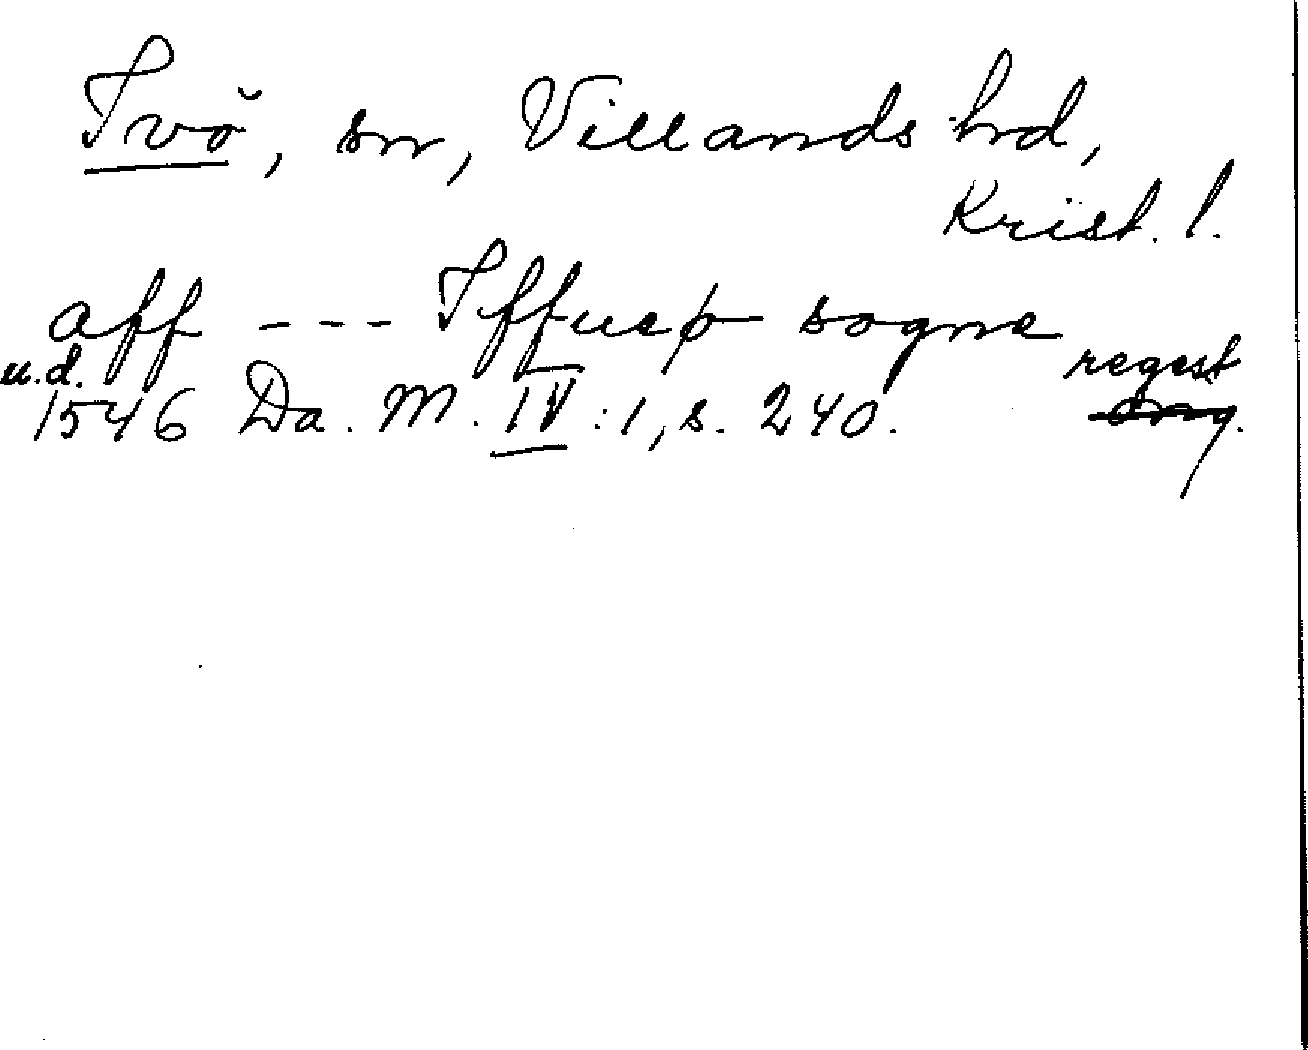 Ivö, sn, Villands hd,
Krist. l.
aff --- Iffueø sogne
u.d. regest
1546 Da. M. IV:1, s. 240. orig.